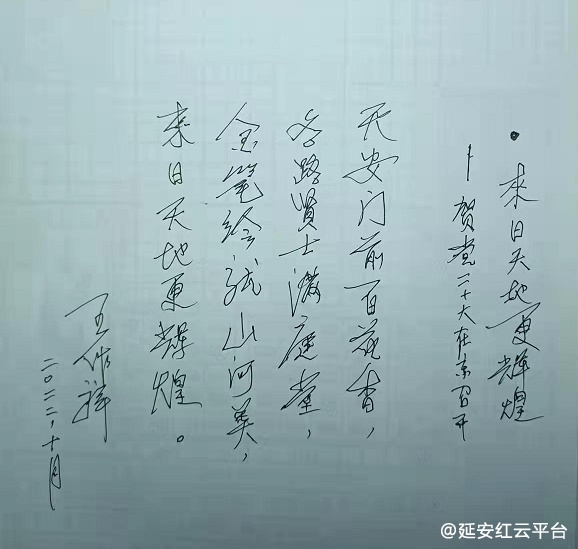 ·来日天地更辉煌
—贺党二十大在京召开
天安门前百花香，
各路贤士满庭堂，
金笔绘就山河美，
来日天地更辉煌。
王作祥
二〇二二，十月
@延安红云平台